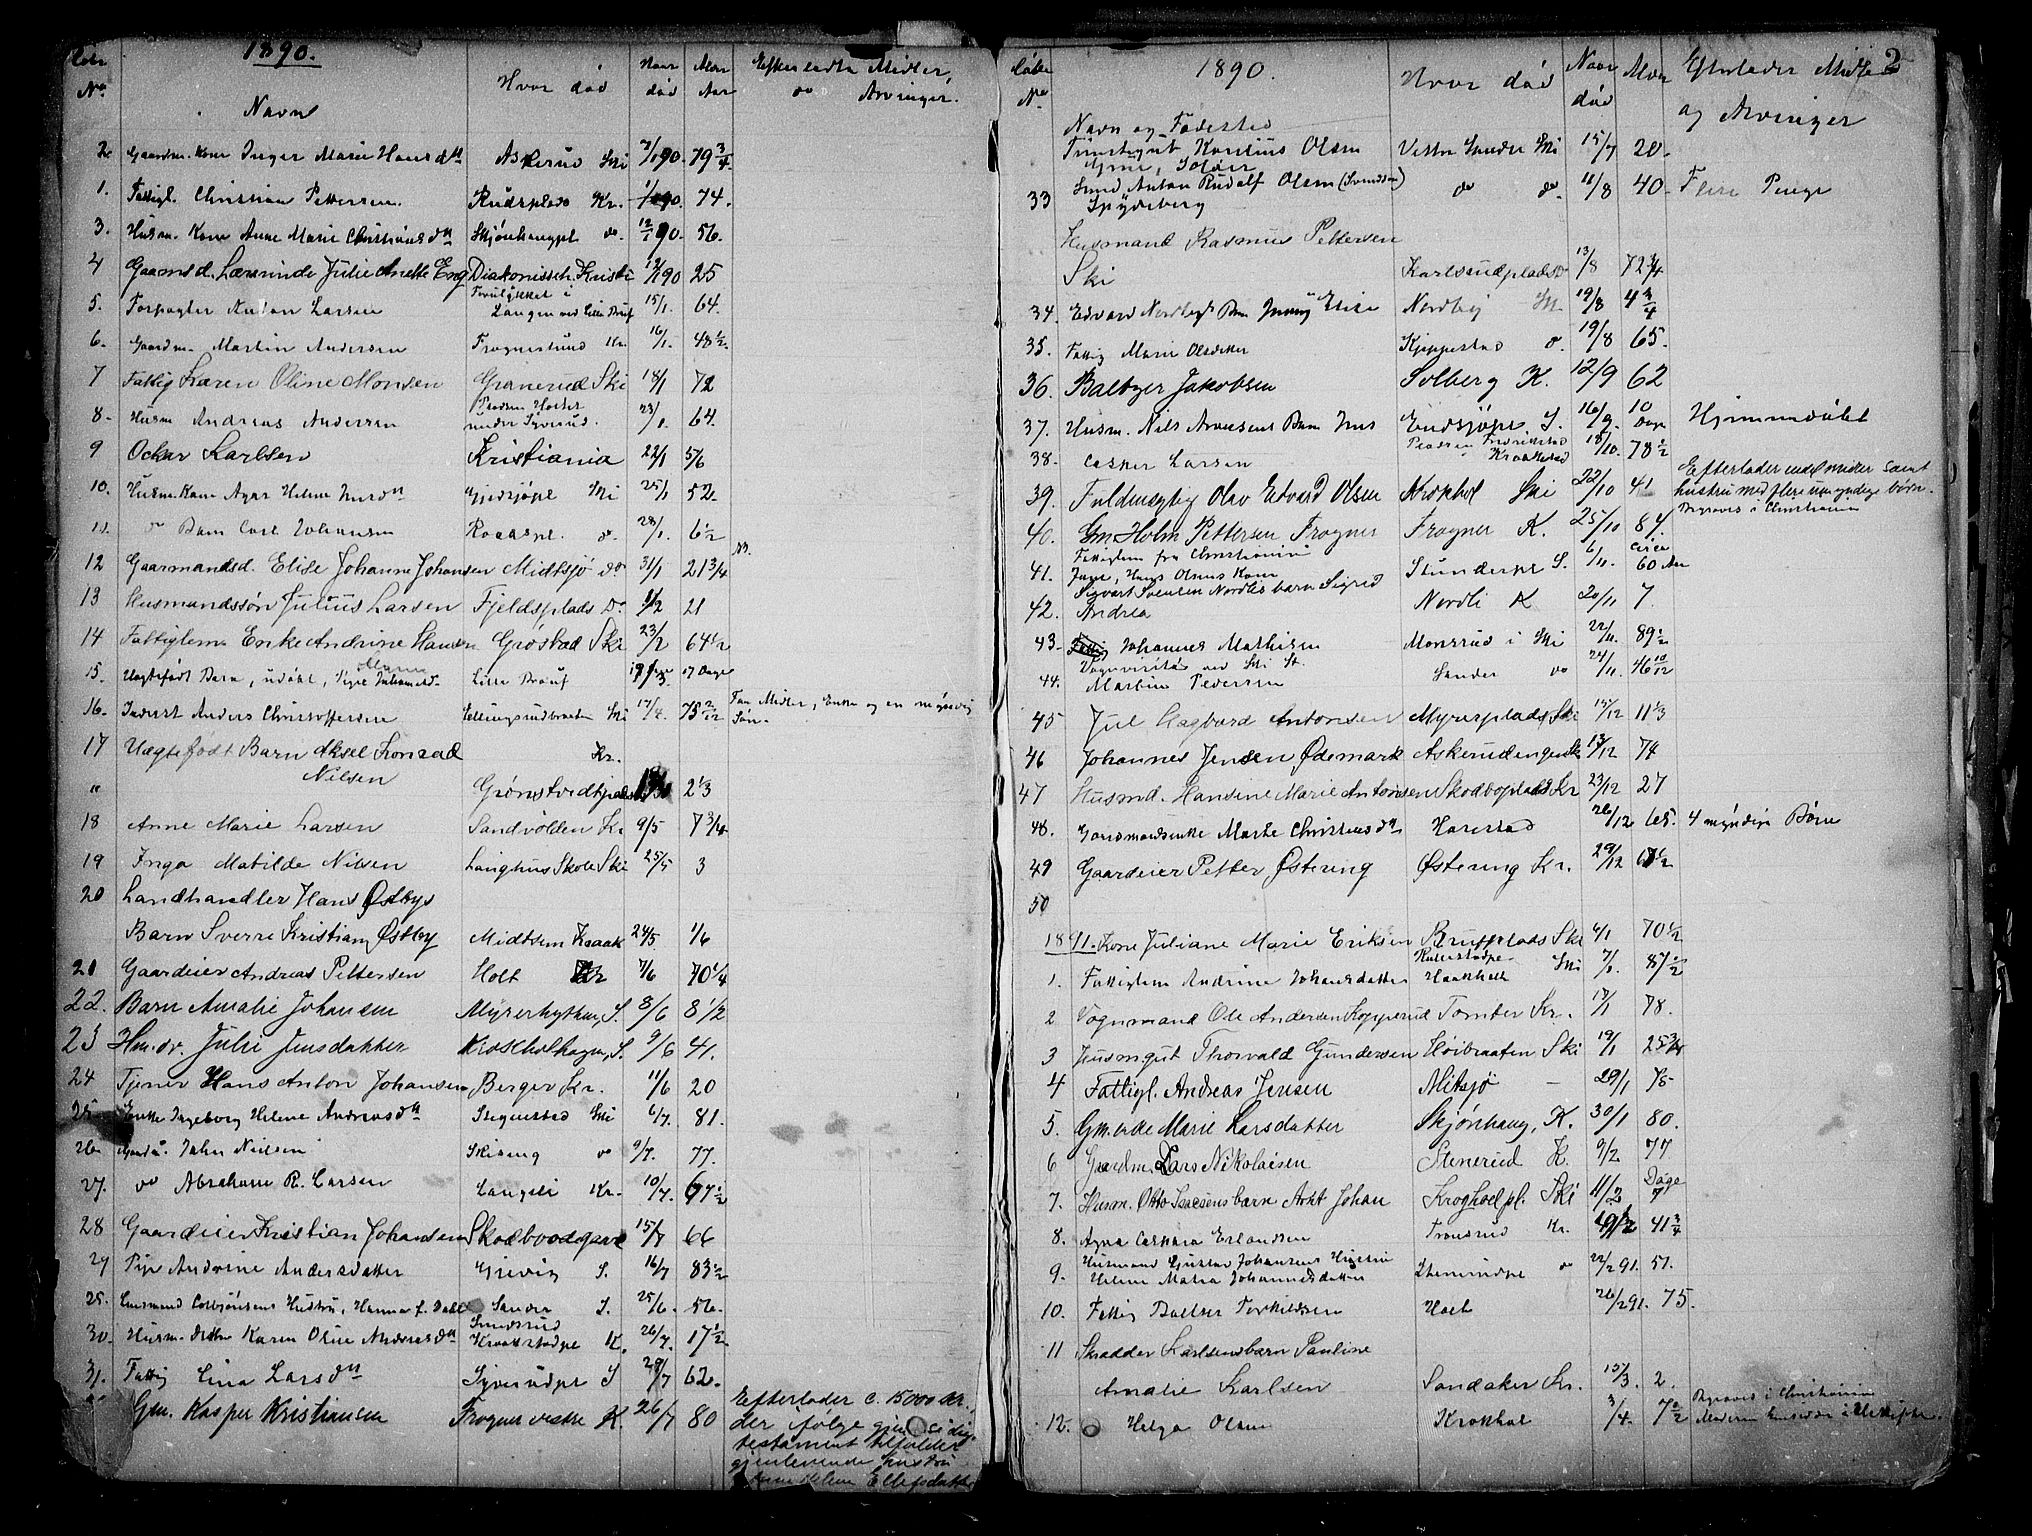 1890.
No
Navn
Hvor död
Naar död
Alder Aar
Efterladte Midler, og Arvinger.
2. Gaardm. Kone Inger Marie Hansdtt Askerud Ski 7/1 90. 79 3/4
1. Fattigl. Christian Pettersen. Rudsplads Kr. 90. 74.
3. Husm. Kone Anne Marie Christiansdtt Skjönhaugpl do. 12/1 90. 56.
4 Gaamsd. Lærerinde Julie Anette Eng Diakonisseh. Kristi 12/1 90 25
5. Forpagter Anton Larsen Forulykket i
Langen ved Lille Bruf 15/1. 64.
6. Gaardm. Martin Andersen Frognerlund Kr. 16/1. 48 1/2.
7 Fattig Karen Oline Monsen Granerud Ski 18/1 72
8. Husm Andreas Andersen Pladsen Holter
under Syverud. 23/1. 64.
9 Oskar Karlsen Kristiania 22/1 5/6
10. Husm. Kone Agas Helene Jensdtt Gjedsjöpl. Ski 25/1 52.
11. do Barn Carl Johansen Roaaspl. do. 28/1. 6 1/2
12 Gaarmandsd. Elise Johanne Johansen Midtsjö do 31/1 21 3/4
13 Husmandssön Julius Larsen Fjeldsplads Do. 1/2 21
14 Fattiglem Enke Andrine Hansen Gröstad Ski 23/2 64 1/2
15. Uægtefödt Barn, udöbt, Lille Bruf 17 Dage
16. Inderst Anders Christoffersen Ski 17/4. 75 2/12 Faa Midler, Enke og en myndig
Sön.
17 Uægtefödt Barn Aksel Konrad Kr.
Nilsen
" Grönstvedtplads 2 1/3
18 Anne Marie Larsen Sandvolden Kr 9/5 7 3/4
19 Inga Matilde Nilsen Langhus Skole Ski 25/5 3
20 Landhandler Hans Østbys
Barn Sverre Kristian Østby Midtsem Kraak 24/5. 1/6
21 Gaardeier Andreas Pettersen Holt Kr 7/6 70 1/4
22. Barn Amalie Johansen Myrerhytten, S. 8/6 8 1/2
23 Hm. dr. Julie Jensdatter Krokholhagen, S. 9/6 41.
24 Tjener Hans Anton Johansen Berger Kr. 11/6 20
25 Enke Ingeborg Helene Andreasdtt Ski 6/7. 81.
26. John Nielsen Skiseng do 9/7. 77.
27. do Abraham R. Larsen Langeli Kr. 10/7. 67 1/2
28 Gaardeier Kristian Johansen Skodbodgaard 15/7 66
29 Pige Andrine Andersdatter Grevig S. 16/7 83 1/2
Hustru, Hanna L. Dahl Sander S. 25/6. 56.
30. Husm. Datter Karen Oline Andreasdtt
Kraakstadpl K. 26/7. 17 1/2
31. Fattig Lina Larsdtt Syverudpl S 29/7 62.
Gm. Kasper Kristiansen Frogner vestre K. 26/7 80 Efterlader c. 15000 kr.
der ifölge gjensidig
testament tilfalder
gjenlevende hustru
Helene Ellefsdatter
2
Löbe No 1890.
Navn og Födested
Hvor död
Naar död
Alder
Efterladte Midler
og Arvinger
Tjenstegut Karelius Olsen Vestre Sander Ski 15/7 20.
Grue, Solør
33 Smed Anton Rudolf Olsen (Svendsen) do do. 11/8 40. Flere Penge
Spydeberg
Husmand Rasmus Pettersen
Ski Karlsrudplads 13/8 72 3/4
34. Edvard Nordbys Barn Jenny Elise Nordby Ski 19/8 4 3/4
35. Fattig Marie Olsdatter Kjeppestad do. 19/8 65.
36. Baltzer Jakobsen Solberg K. 12/9 62
37. Husm. Nils Arnesens Barn Jens Endsjöpl. S. 16/9. 10 Dage Hjemmedöbt
38. Casper Larsen Pladsen Fredrikstad
Kraakstad 18/10. 78 1/2
39. Fuldmægtig Olav Edvard Olsen Krokhol Ski 22/10 41 Efterlader endel midler samt
hustru med flere umyndige börn.
Begraves i Christiania
40. Gm Holm Pettersen Frogner Frogner K. 25/10 84.
Fattiglem fra Christiania
41. Jane, Hans Olsens Kone Stunderpl S. 6/11. circa 60 Aar
42. Sigvart Svensen Nordlis barn Sigrid
Andrea Nordli K 20/11 7.
43. Fattig Johannes Mathisen Monsrud i Ski 22/11. 89 1/2
Vognvisitör ved Ski St.
44. Martin Pedersen Sander do 24/11. 46 10/12
45 Jul Hagbard Antonsen Myrerplads Ski 15/12 11 1/3
46 Johannes Jensen Ødemark Askerudengen Sk 13/12 74
47 Husmd. Hansine Marie Antonsen Skodboplads Kr 23/12 27
48. Gaardmandsenke Marte Christensdtt Harestad 26/12 65. 4 myndige Börn
49 Gaardeier Petter Østereng Østereng Kr. 29/12
50
1891. Kone Juliane Marie Eriksen Brufplads Ski 6/1 70 1/2
1. Fattiglem Andrine Johansdatter Haakholt Ski 7/1. 87 1/2
2 Vognmand Ole Andersen Kopperud Tomter Kr. 17/1 78.
3 Husmgut Thorvald Gundersen Höibraaten Ski 19/1 25 3/4
4 Fattigl. Andreas Jensen Mitsjö - 29/1 75
5. Gm. enke Marie Larsdatter Skjönhaug, K. 30/1 80.
6 Gaardm. Lars Nikolaisen Stenerud K. 9/2 77
7. Husm. Otto Isacsens barn Arnt Johan Kroghol pl. Ski 11/2 Dage 7
8. Agna Caspara Erlandsen Tronsrud Kr. 19/2 41 3/4
9. Husmand Gustav Johansens Hustru
Helene Matea Johannesdatter Stenerudpl do 22/2 91. 51.
10. Fattig Baltser Torkildsen Holt 26/2 91. 75.
11 Skrædder Karlsens barn Pauline
Amalie Karlsen Sandaker Kr. 15/3. 2.
12. Helga Olsen Krokhol 3/4. 7 1/2 Begraves i Christiania